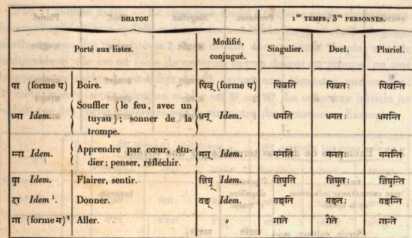 DHATOU 1er TEMPS, 3es PERSONNES.
Porté aux listes. Modifié, conjugué. Singulier. Duel. Pluriel.
पा (forme प) Boire. पिब् (forme प) पिबति पिबतः पिबन्ति
ध्मा Idem. Souffler (le feu, avec un tuyau); sonner de la trompe. धम् Idem. धमति धमतः धमन्ति
म्ना Idem. Apprendre par cœur, étudier; penser, réfléchir. मन् Idem. मनति मनतः मनन्ति
घ्रा Idem. Flairer, sentir. जिघ्र् Idem. जिघ्रति जिघ्रतः जिघ्रन्ति
दा Idem¹. Donner. यच्छ् Idem. यच्छति यच्छतः यच्छन्ति
गा (forme म)² Aller. गाते गाते गान्ते